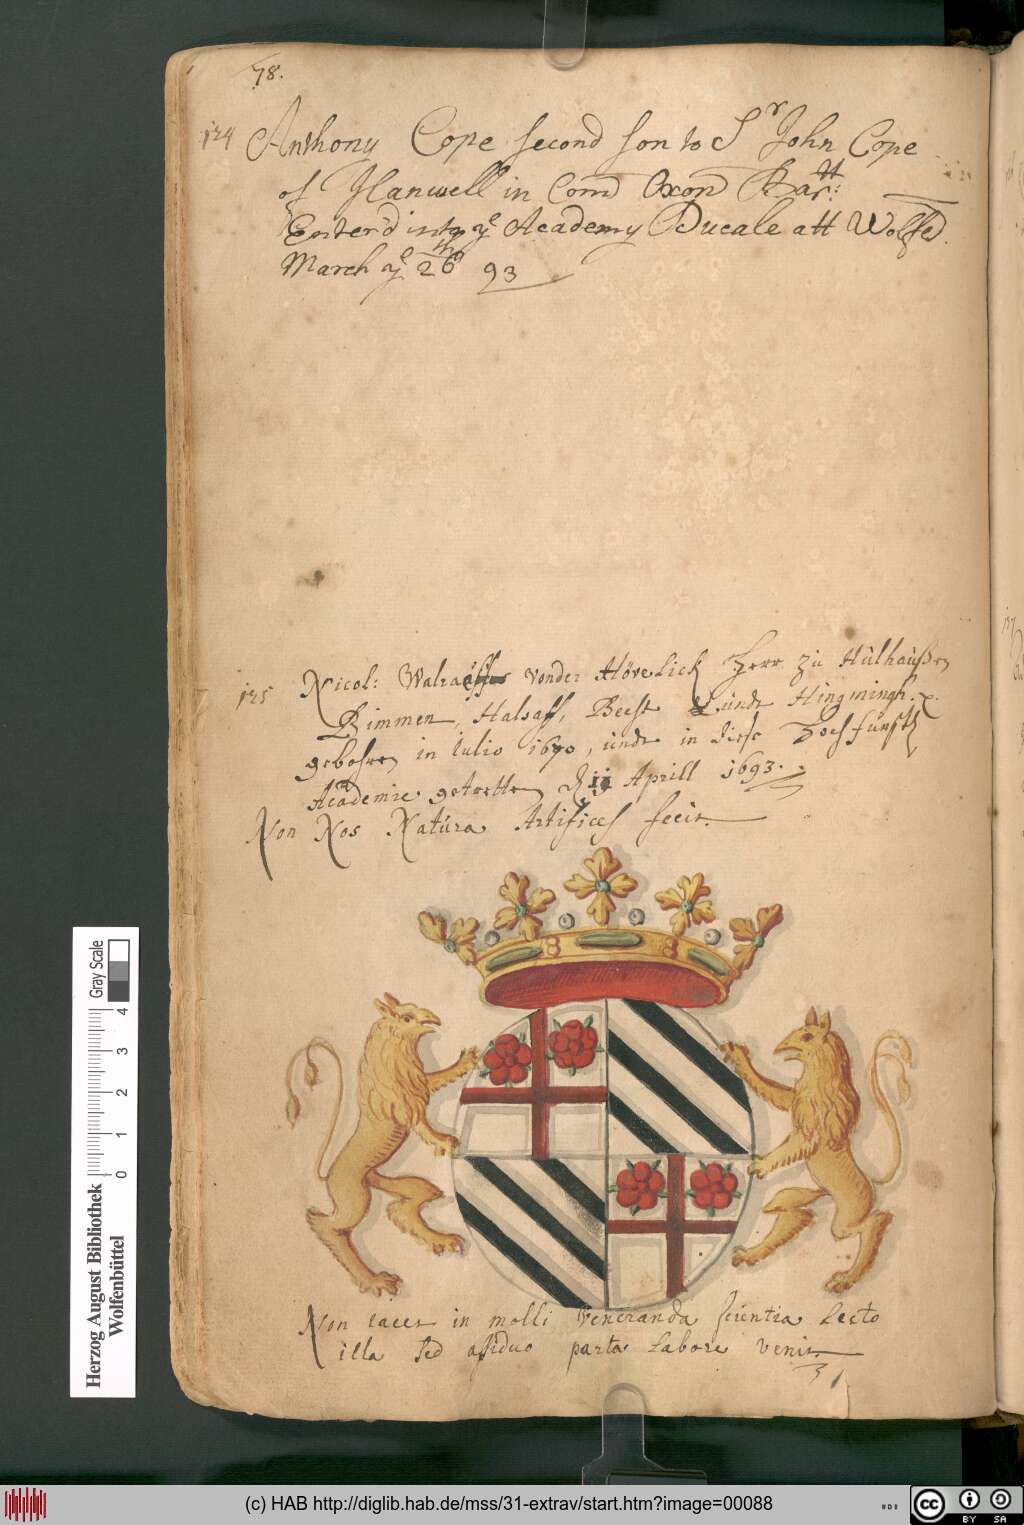 78.
124 Anthony Cope second son to Sr John Cope
of Hanwell in Com Oxon Bartt:
Enter'd into ye Academy Ducale att Wolffed.
March ye 26th 93
125 Nicol: vonder Hövelick Herr zu Hülhaußen
Rimmen, Halsaff, Beest undt Hingmingh. x.
gebohren in iulio 1670, undt in diese Hochfürstl
Academie getretten d 11 Aprill 1693.
Non Nos Natura Artifices fecit.
Non iacet in molli Veneranda scientia Lecto
illa sed assiduo parta Labore venit
31
Herzog August Bibliothek
Wolfenbüttel
0 1 2 3 4
Gray Scale
(c) HAB http://diglib.hab.de/mss/31-extrav/start.htm?image=00088
cc
BY SA